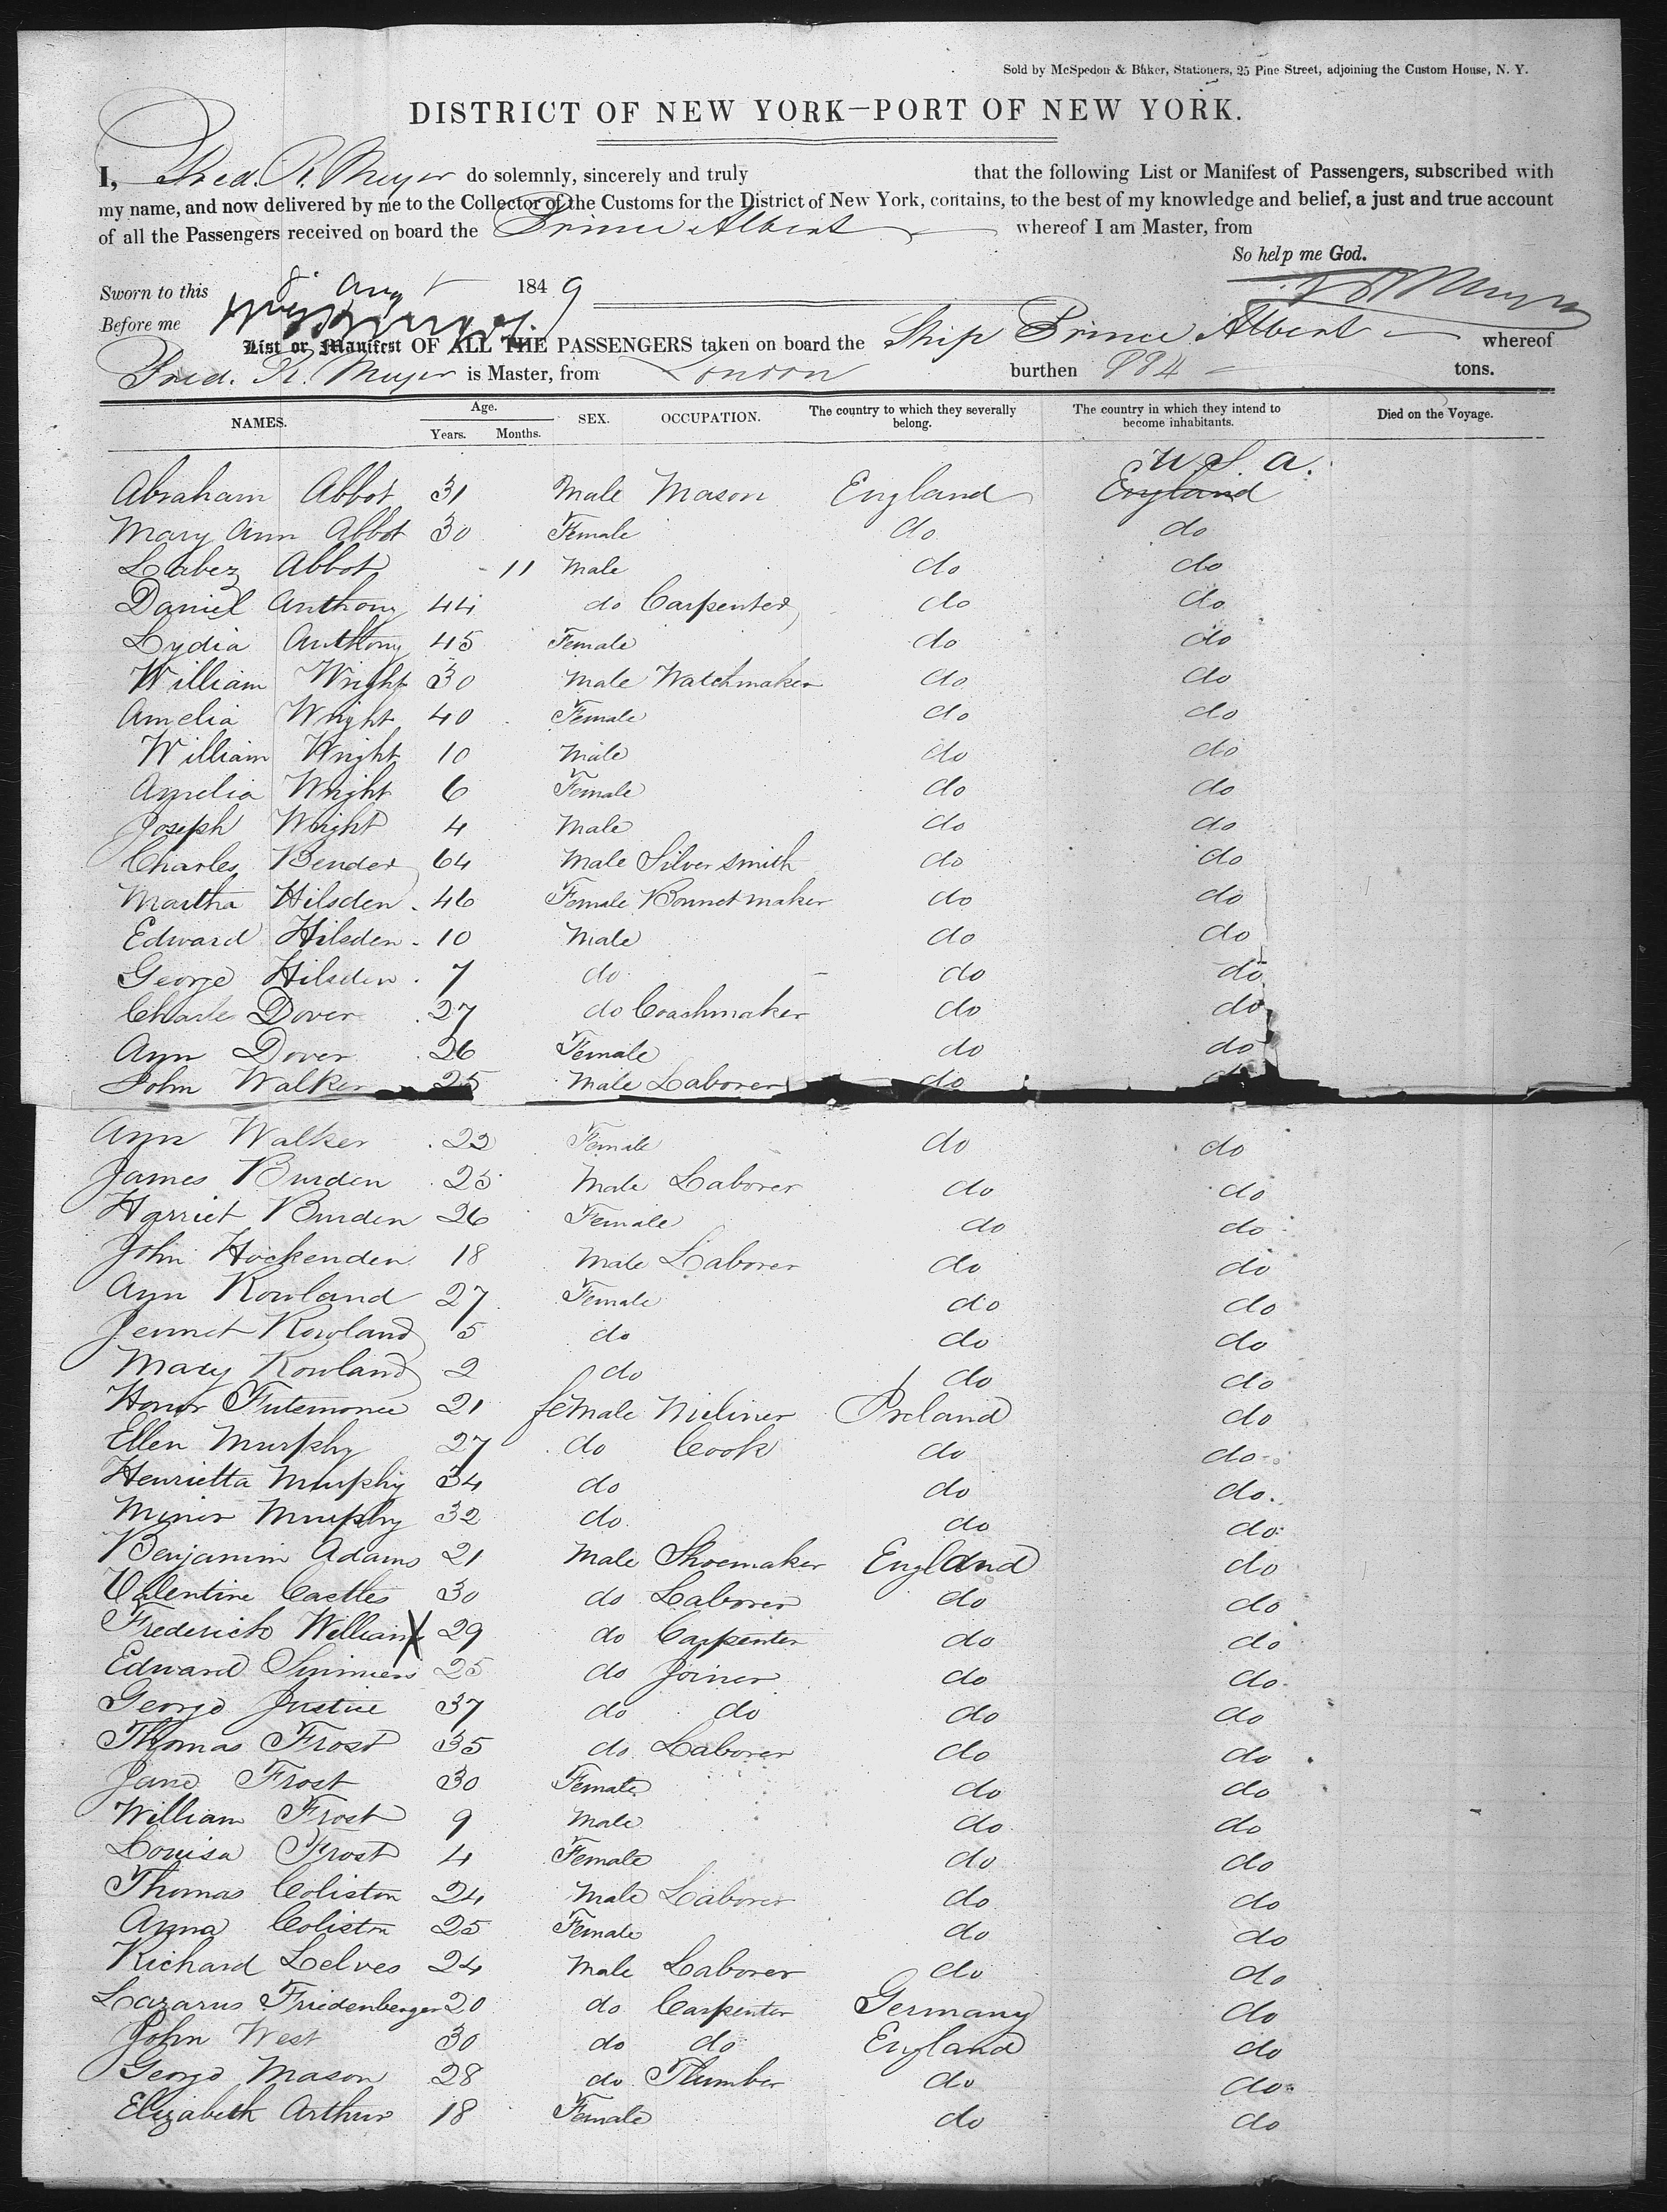 Sold by McSpedon & Baker, Stationers, 25 Pine Street, adjoining the Custom House, N. Y.
DISTRICT OF NEW YORK—PORT OF NEW YORK.
I, Fred. R. Meyer do solemnly, sincerely and truly that the following List or Manifest of Passengers, subscribed with
my name, and now delivered by me to the Collector of the Customs for the District of New York, contains, to the best of my knowledge and belief, a just and true account
of all the Passengers received on board the Prince Albert whereof I am Master, from
So help me God.
Sworn to this 8 Aug 1849
Before me
List or Manifest OF ALL THE PASSENGERS taken on board the Ship Prince Albert whereof
Fred. R. Meyer is Master, from London burthen 884 tons.
NAMES. Age. Years. Months. SEX. OCCUPATION. The country to which they severally belong. The country in which they intend to become inhabitants. Died on the Voyage.
U. S. A.
Abraham Abbot 31 Male Mason England England
Mary Ann Abbot 30 Female do do
Labez Abbot 11 Male do do
Daniel Anthony 44 do Carpenter do do
Lydia Anthony 45 Female do do
William Wright 30 Male Watchmaker do do
Amelia Wright 40 Female do do
William Wright 10 Male do do
Amelia Wright 6 Female do do
Joseph Wright 4 Male do do
Charles Bender 64 Male Silver smith do do
Martha Hilsden 46 Female Bonnet maker do do
Edward Hilsden 10 Male do do
George Hilsden 7 do do do
Charle Dover 27 do Coachmaker do do
Ann Dover 26 Female do do
John Walker 25 Male Laborer do do
Ann Walker 22 Female do do
James Burden 25 Male Laborer do do
Harriet Burden 26 Female do do
John Hockenden 18 Male Laborer do do
Ann Rowland 27 Female do do
Jennet Rowland 5 do do do
Mary Rowland 2 do do do
Honor 21 female Miliner Ireland do
Ellen Murphy 27 do Cook do do
Henrietta Murphy 34 do do do
Minor Murphy 32 do do do
Benjamin Adams 21 Male Shoemaker England do
Valentine Castles 30 do Laborer do do
Frederick William X 29 do Carpenter do do
Edward Simmens 25 do Joiner do do
George Justice 37 do do do do
Thomas Frost 35 do Laborer do do
Jane Frost 30 Female do do
William Frost 9 Male do do
Louisa Frost 4 Female do do
Thomas Coliston 24 Male Laborer do do
Anna Coliston 25 Female do do
Richard Lelves 24 Male Laborer do do
Lazarus Friedenberger 20 do Carpenter Germany do
John West 30 do do England do
George Mason 28 do Plumber do do
Elizabeth Arthur 18 Female do do